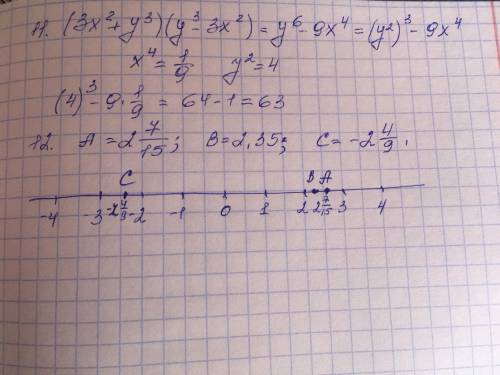 11. (3x²+y³)(y³-3x²)=y⁶-9x⁴=(y²)³-9x⁴
x⁴=1/9 y²=4
(4)³-9·1/9=64-1=63
12. A=2 7/15; B=2,35; C=-2 4/9.
C B A
-4 -3 -2 4/9 -2 -1 0 1 2 2 7/15 3 4